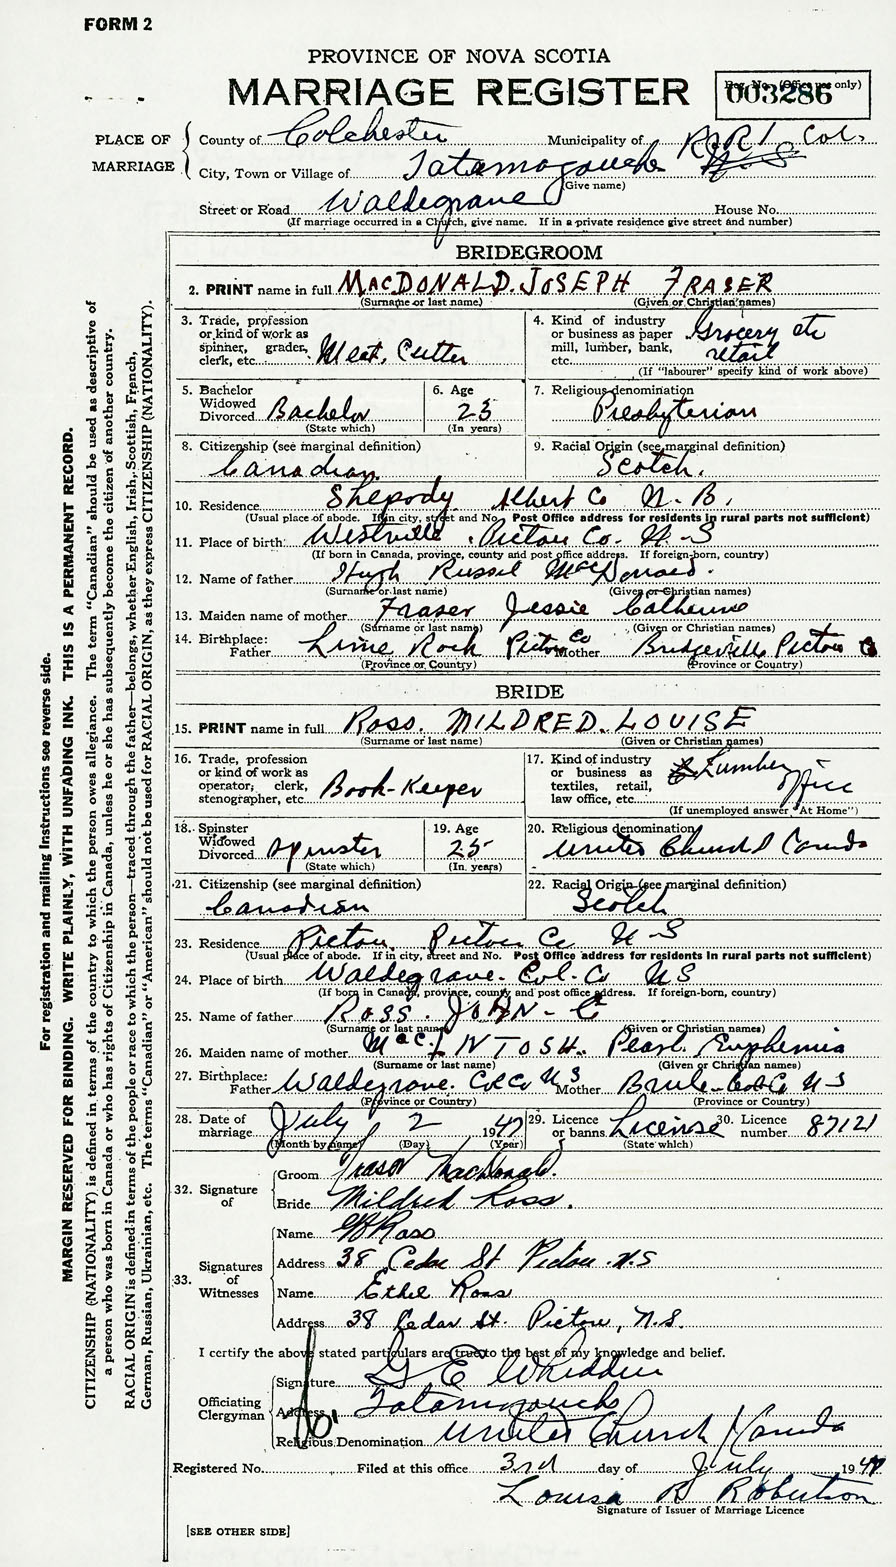 FORM 2
PROVINCE OF NOVA SCOTIA
MARRIAGE REGISTER
Reg. No. (Office use only)
003286
PLACE OF MARRIAGE
County of Colchester Municipality of R R 1 Col.
City, Town or Village of Tatamagouche N.S
(Give name)
Street or Road Waldegrave House No.
(If marriage occurred in a Church, give name. If in a private residence give street and number)
BRIDEGROOM
2. PRINT name in full MACDONALD. JOSEPH FRASER
(Surname or last name) (Given or Christian names)
3. Trade, profession or kind of work as spinner, grader, clerk, etc. Meat Cutter
4. Kind of industry or business as paper mill, lumber, bank, etc. Grocery etc retail
(If "labourer" specify kind of work above)
5. Bachelor Widowed Divorced Bachelor
(State which)
6. Age 25
(In years)
7. Religious denomination
Presbyterian
8. Citizenship (see marginal definition)
Canadian
9. Racial Origin (see marginal definition)
Scotch.
10. Residence Shepody Albert Co N.B.
(Usual place of abode. If in city, street and No. Post Office address for residents in rural parts not sufficient)
11. Place of birth Westville Pictou Co. N-S
(If born in Canada, province, county and post office address. If foreign-born, country)
12. Name of father Hugh Russel MacDonald.
(Surname or last name) (Given or Christian names)
13. Maiden name of mother Fraser Jessie Catherine
(Surname or last name) (Given or Christian names)
14. Birthplace: Father Lime Rock Pictou Co Mother Bridgeville Pictou Co
(Province or Country) (Province or Country)
BRIDE
15. PRINT name in full ROSS. MILDRED. LOUISE
(Surname or last name) (Given or Christian names)
16. Trade, profession or kind of work as operator, clerk, stenographer, etc. Book-Keeper
17. Kind of industry or business as textiles, retail, law office, etc. Lumber office
(If unemployed answer "At Home")
18. Spinster Widowed Divorced Spinster
(State which)
19. Age 25
(In years)
20. Religious denomination
United Church of Canada
21. Citizenship (see marginal definition)
Canadian
22. Racial Origin (see marginal definition)
Scotch
23. Residence Pictou, Pictou Co N-S
(Usual place of abode. If in city, street and No. Post Office address for residents in rural parts not sufficient)
24. Place of birth Waldegrave. Col. Co NS
(If born in Canada, province, county and post office address. If foreign-born, country)
25. Name of father ROSS. JOHN - C
(Surname or last name) (Given or Christian names)
26. Maiden name of mother MacINTOSH. Pearl Euphemia
(Surname or last name) (Given or Christian names)
27. Birthplace: Father Waldegrave. Col Co NS Mother Brule Col Co NS
(Province or Country) (Province or Country)
28. Date of marriage July 2 1947
(Month by name) (Day) (Year)
29. Licence or banns License
(State which)
30. Licence number 87121
32. Signature of
Groom Fraser MacDonald.
Bride Mildred Ross.
33. Signatures of Witnesses
Name Ross
Address 38 Cedar St Pictou N.S
Name Ethel Ross
Address 38 Cedar St. Pictou, N.S.
I certify the above stated particulars are true to the best of my knowledge and belief.
Officiating Clergyman
Signature G E Whidden
Address Tatamagouche
Religious Denomination United Church Canada
Registered No. Filed at this office 3rd day of July 1947
Louisa B Robertson
Signature of Issuer of Marriage Licence
[SEE OTHER SIDE]
For registration and mailing Instructions see reverse side.
MARGIN RESERVED FOR BINDING. WRITE PLAINLY, WITH UNFADING INK. THIS IS A PERMANENT RECORD.
CITIZENSHIP (NATIONALITY) is defined in terms of the country to which the person owes allegiance. The term "Canadian" should be used as descriptive of
a person who was born in Canada or who has rights of Citizenship in Canada, unless he or she has subsequently become the citizen of another country.
RACIAL ORIGIN is defined in terms of the people or race to which the person—traced through the father—belongs, whether English, Irish, Scottish, French,
German, Russian, Ukrainian, etc. The terms "Canadian" or "American" should not be used for RACIAL ORIGIN, as they express CITIZENSHIP (NATIONALITY).